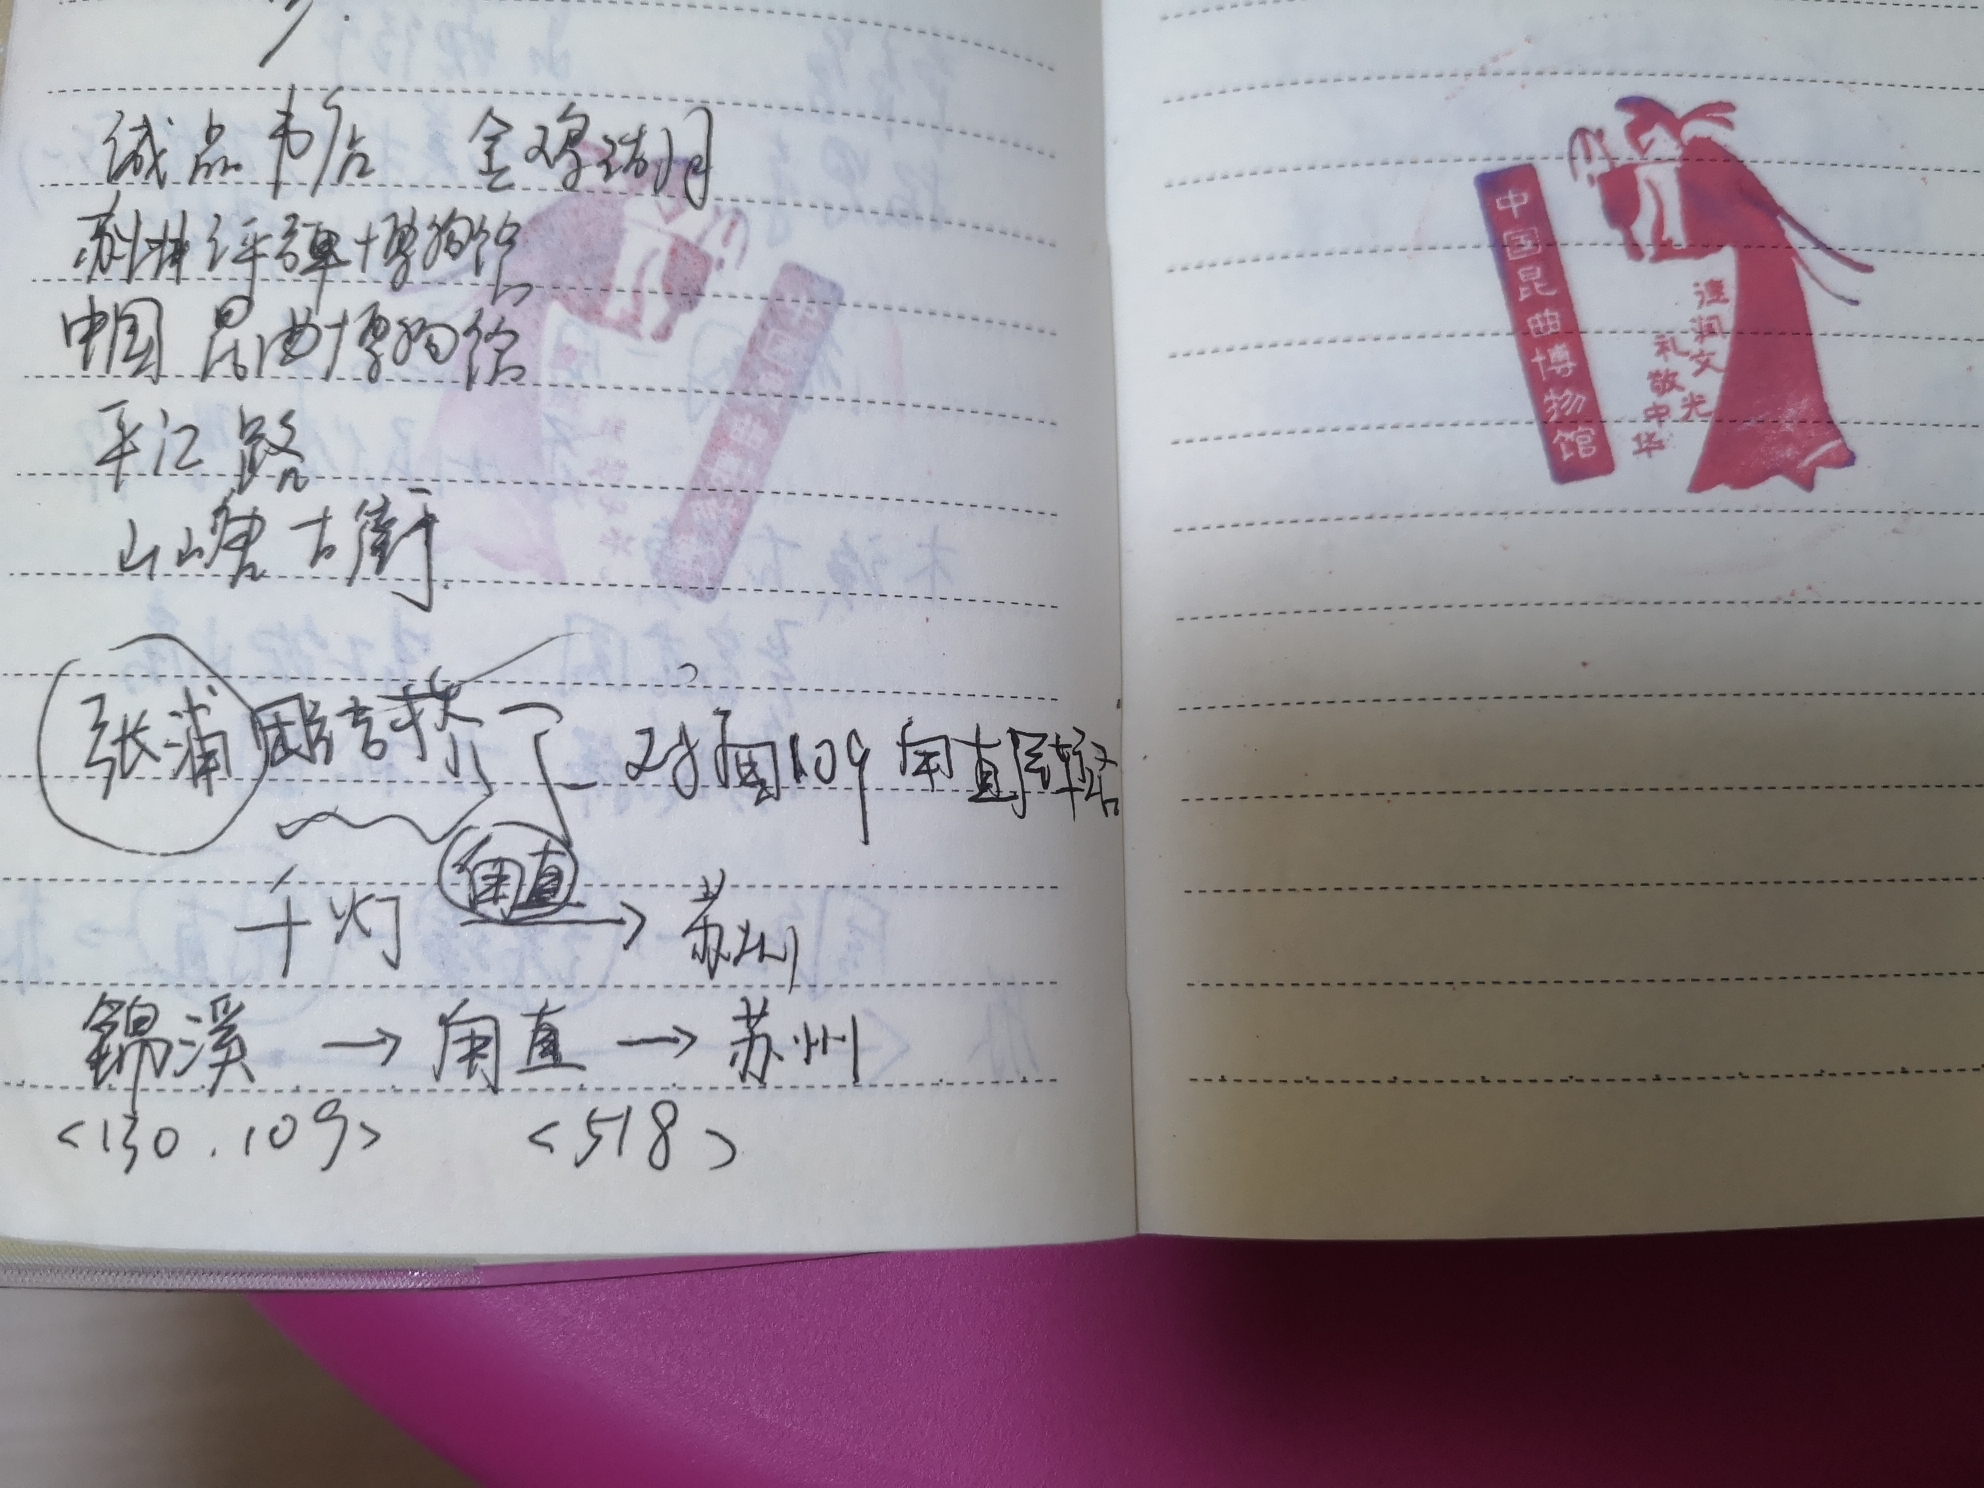 诚品书店 金鸡湖月
苏州评弹博物馆
中国昆曲博物馆
平江路
山塘古街
张浦
对面109 甪直
甪直
千灯 → 苏州
錦溪 → 甪直 → 苏州
<130.109> <518>
中国昆曲博物馆
润文光
礼敬中华